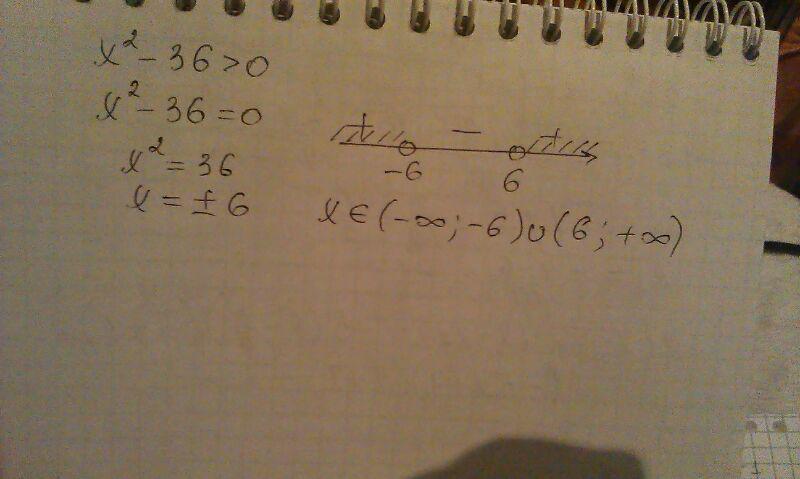 x² - 36 > 0
x² - 36 = 0
x² = 36
x = ± 6
+ − +
-6 6
x ∈ (-∞; -6) ∪ (6; +∞)